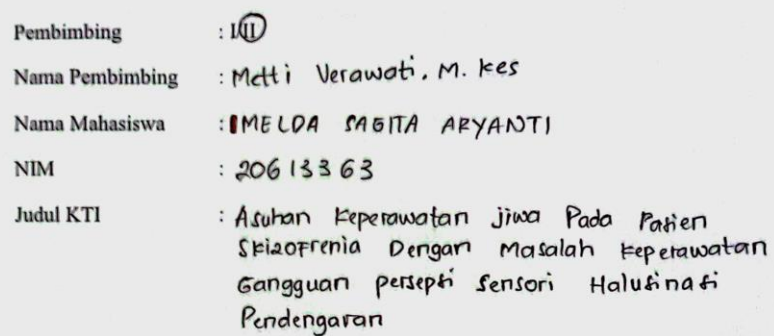 Pembimbing : I/II
Nama Pembimbing : Metti Verawati, M. Kes
Nama Mahasiswa : IMELDA SAGITA ARYANTI
NIM : 20613363
Judul KTI : Asuhan Keperawatan jiwa Pada Pasien
Skizofrenia Dengan Masalah Keperawatan
Gangguan persepsi Sensori Halusinasi
Pendengaran